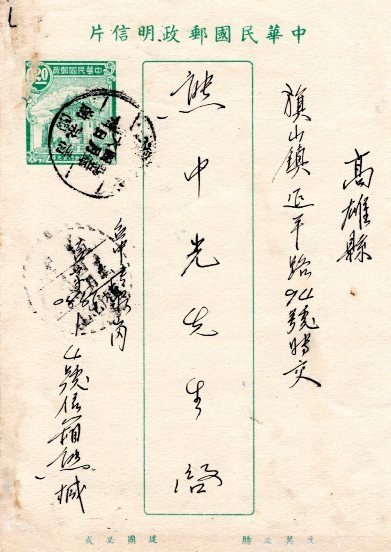 中華民國郵政明信片
中華民國郵政
高雄縣
旗山鎮延平路94號
熊中光先生啟
4號信箱熊緘
反共必勝 建國必成